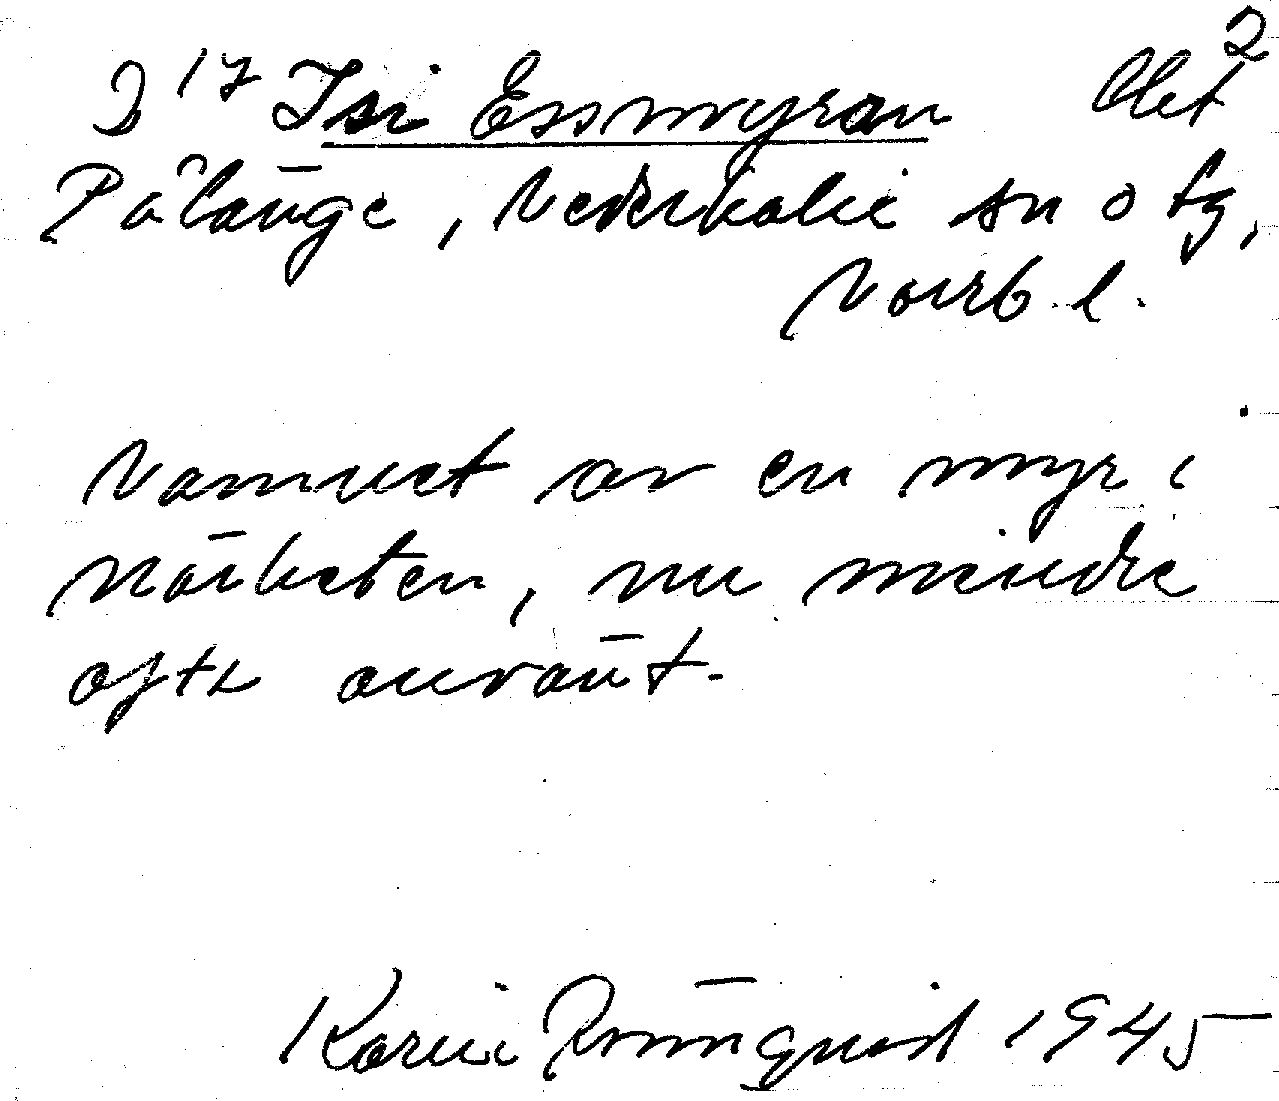 D 17 Isi Essmyran Olet 2
Pålänge, Nederkalix sn o tg,
Norrb. l.
Namnet av en myr i
närheten, nu mindre
ofta använt.
Karin Rönnquist 1945